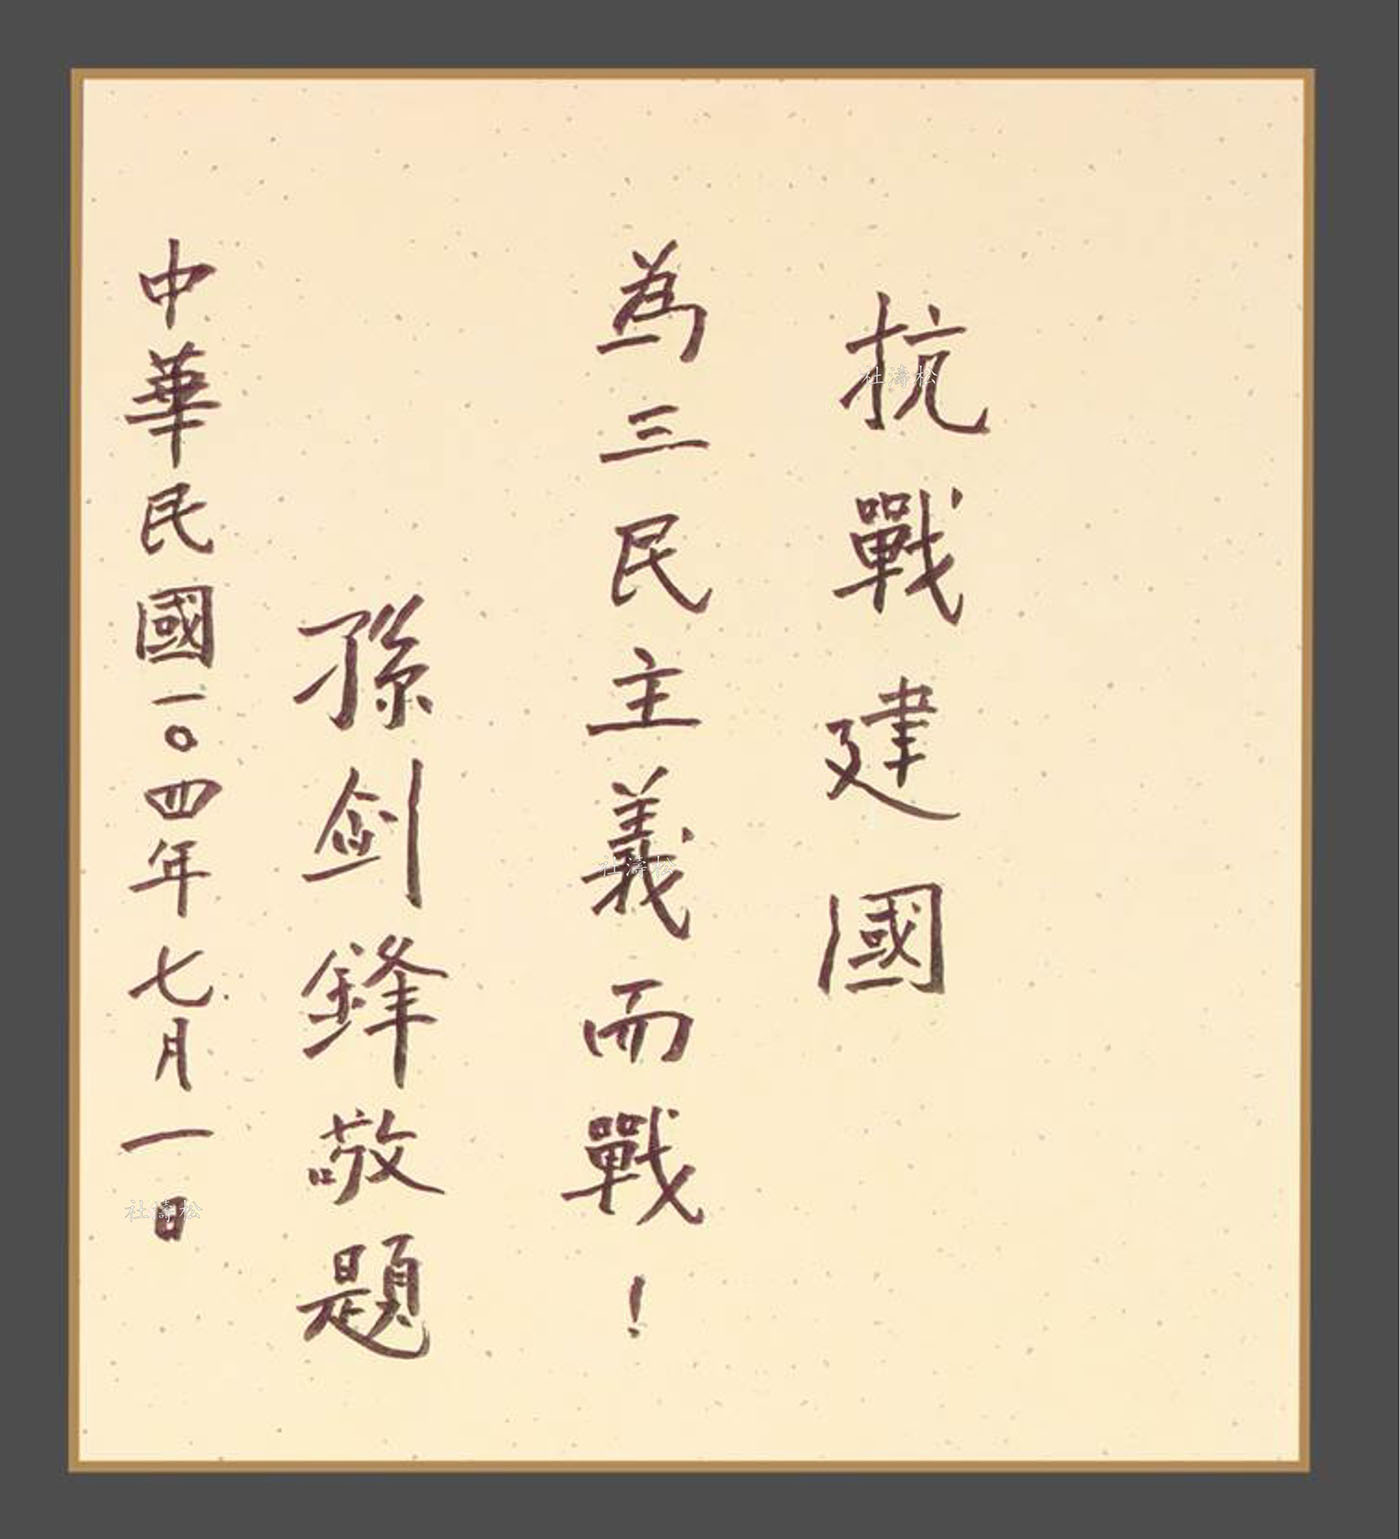 抗戰建國
為三民主義而戰！
孫剑鋒敬題
中華民國一〇四年七月一日
杜濤松
杜濤松
杜濤松